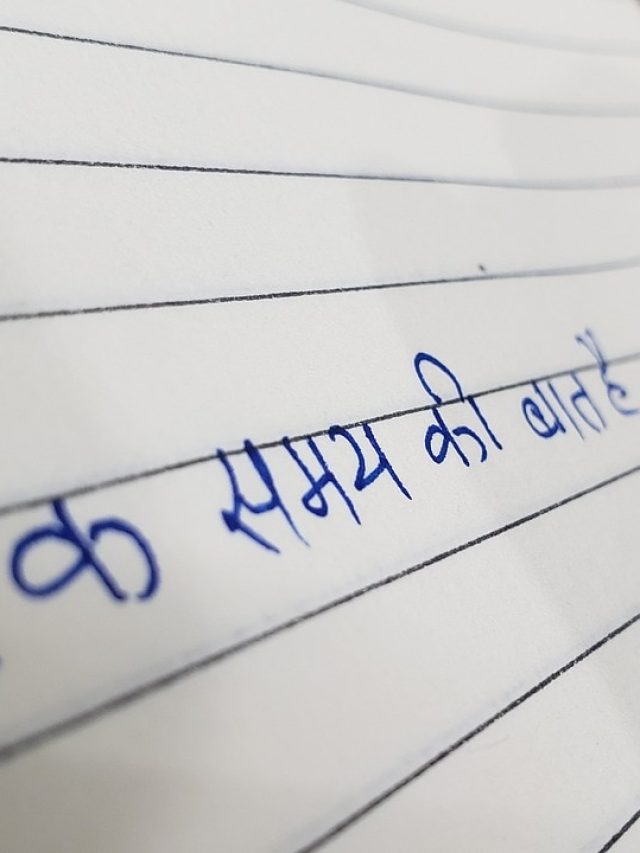 क समय की बात है